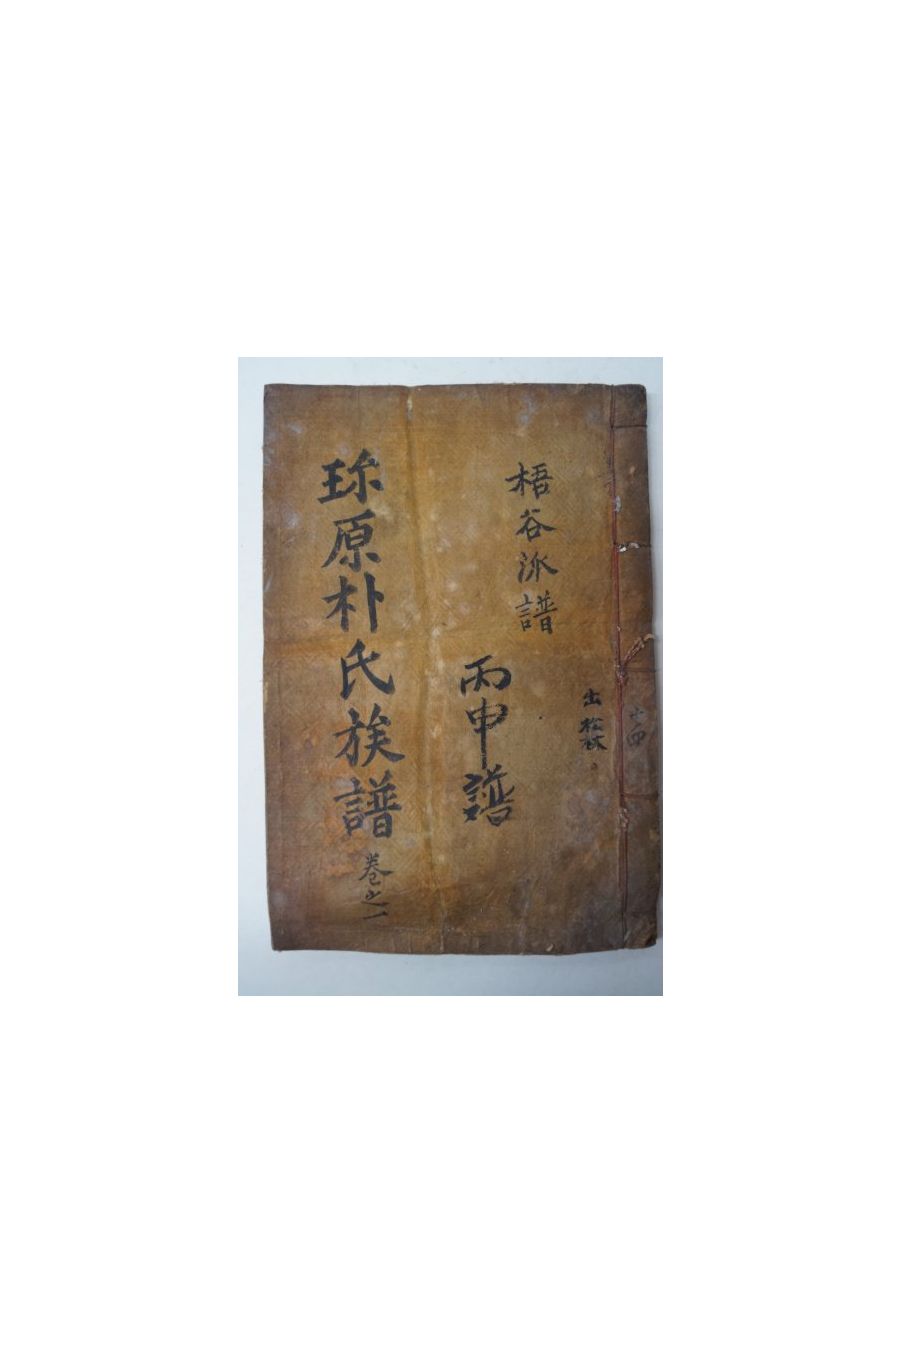 梧谷派譜
丙申譜
珎原朴氏族譜 卷之一
出松林
十四